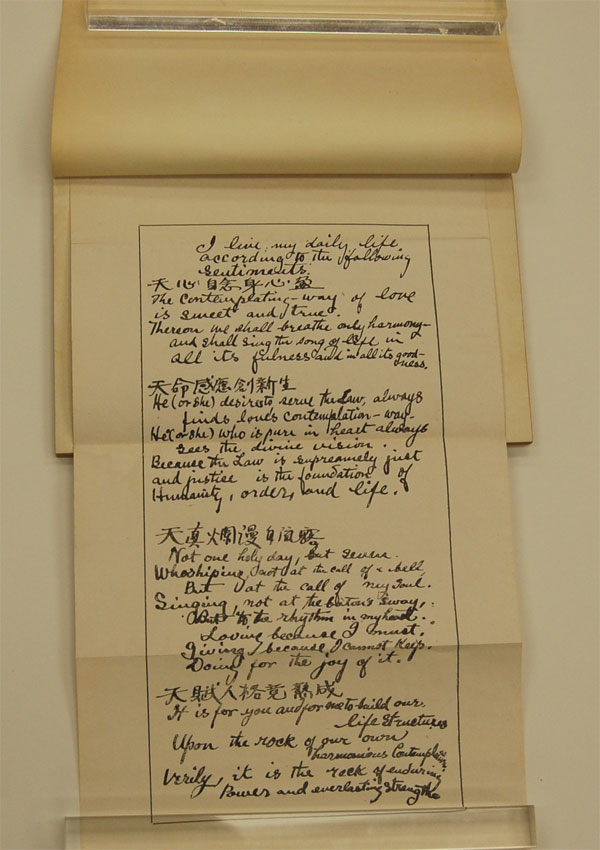 I live my daily life,
according to the following
sentiments.
天心自啓身心盈
The contemplating-way of love
is sweet and true.
Thereon we shall breathe only harmony-
and shall sing the song of life in
all its fulness and in all its good-
ness.
天命感應創新生
He (or she) desires to serve the law, always
finds love's contemplation-way-
He (or she) who is pure in heart always
sees the divine vision.
Because the Law is supreamely just
and justice is the foundation of
Humanity, order, and life.
天真爛漫自流露
Not one holy day, but seven.
Whoshiping, not at the call of a bell,
But at the call of my Soul.
Singing, not at the baton's sway,
But to the rhythm in my heart.
Loving because I must.
Giving because I cannot Keep.
Doing for the joy of it.
天賦人格竟熟成
It is for you and for me to build our
life structures
Upon the rock of our own
harmonious
Verily, it is the rock of enduring
Power and everlasting strength.